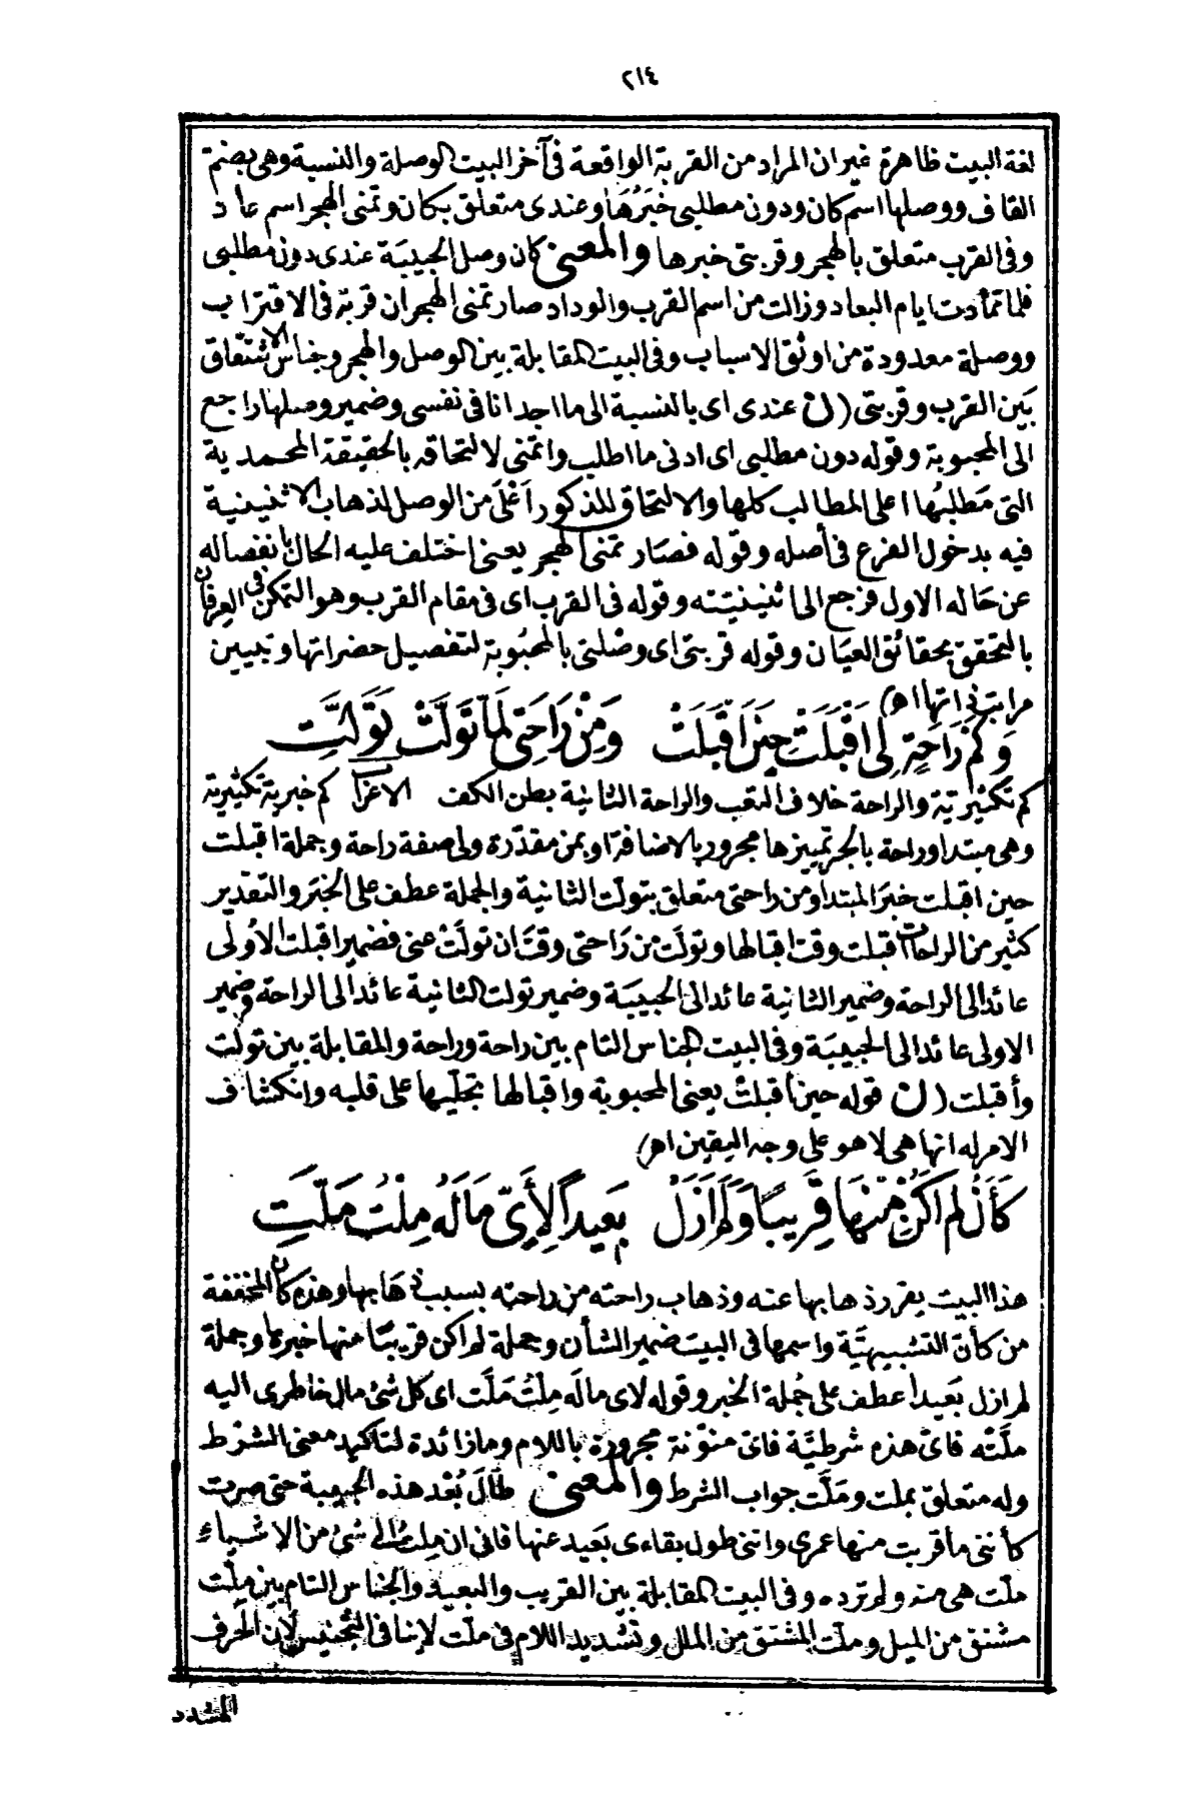 ٢١٤
لغة البيت ظاهرة غير ان المراد من القربة الواقعة فى آخر البيت الوصلة والنسبة وهى بضم
القاف ووصلها اسم كان ودون مطلبى خَبَرُهَا وعندى متعلق بكان وتمنى الهجر اسم عاد
وفى القرب متعلق بالهجر وقربتى خبرها والمعنى كان وصل الحبيبَة عندى دون مطلبى
فلما تمادت ايام البعاد وزالت من اسم القرب والوداد صار تمنى الهجران قربة فى الاقتراب
ووصلة معدودة من اوثق الاسباب وفى البيت المقابلة بين الوصل والهجر وجناس الاشتقاق
بَين القرب وقربتى (ن عندى اى بالنسبة الى ما اجد انا فى نفسى وضمير وصلها راجع
الى المحبوبة وقوله دون مطلبى اى ادنى ما اطلب واتمنى لالتحاقه بالحقيقة المحمدية
التى مَطلبُها اعلى المطالب كلها والالتحاق المذكور اَغلَى من الوصل لذهاب الاثنينية
فيه بدخول الفرع فى أصله وقوله فصَار تمنى الهجر يعنى اختلف عليه الحال بانفصاله
عن حَاله الاول فرجع الى اثنينيَته وقوله فى القرب اى فى مقام القرب وهو التمكن فى العِرفان
بالتحقق بحقائق العيَان وقوله قربتى اى وصْلتى بالمحبُوبة لتفصيل حضراتها وتبيين
مراتب ذاتها اه)
وَكَمْ رَاحَةٍ لِى اَقْبَلَتْ حِينَ اَقْبَلَتْ وَمِنْ رَاحَتِى لَمَّا تَوَلَّتْ تَوَلَّتِ
كم تكثيرتية والراحة خلاف التعب والراحة الثانية بطن الكف الاعراب كم خبرية تكثيرية
وهى مبتدا وراحة بالجر تمييزها مجرور بالاضافة او بمن مقدّرة ولى صفة راحة وجملة اقبلت
حين اقبلت خبرَ المبتدا ومن راحتى متعلق بتولّت الثانية والجملة عطف على الخبَر والتقدير
كثير من الراحات اقبلت وقت اقبالها وتولّت من رَاحتى وقت ان تولّتْ عنى فضمير اقبلت الأولى
عائد الى الراحة وضمير الثانية عائد الى الحبيبَة وضمير تولت الثانية عائد الى الراحة وضمير
الاولى عائد الى الحبيبَة وفى البيت الجناس التام بين راحة وراحة والمقابلة بين تولّت
وأقبلت (ن قوله حين اقبلتْ يعنى المحبوبة واقبالها تجلّيها على قلبه وانكشاف
الامر له انها هى لا هو على وجه اليقين اه)
كَأَنْ لم اَكُنْ مِنْهَا قَرِيبًا وَلَمْ اَزَلْ بَعِيداً لِأَىِّ مَا لَهُ مِلْتُ مَلَّتِ
هذا البيت يقرر ذهابها عنه وذهاب راحته من راحته بسبب ذهَابها وهذه كأن المخففة
من كأنّ التشبيهيَّة واسمها فى البيت ضمير الشأن وجملة لم اكن قريبًا منها خبرها وجملة
لم ازل بَعيداً عطف على جُملة الخبر وقوله لاى ما لَه مِلتُ مَلَّت اى كل شئ مال خاطرى اليه
ملَّته فائ هذه شرطيَّة فائ منوّنة مجرورة باللام وما زائدة لتاكيد معنى الشرْط
وله متعلق بملت ومَلَّت جواب الشرط والمعنى طَالَ بُعْد هذه الحبيبة حتى صرت
كأننى ما قربت منها عمرى واننى طول بقاءى بَعيد عنها فانى ان مِلتُ الى شئ من الاشياء
ملّت هى منه ولم ترده وفى البيت المقابلة بين القريب والبعيد والجناس التام بين مِلت
مشتق من الميل وملّت المشتق من الملل وتشديد اللام فى ملّت لا ينافى التجنيس لان الحرف
المشدد